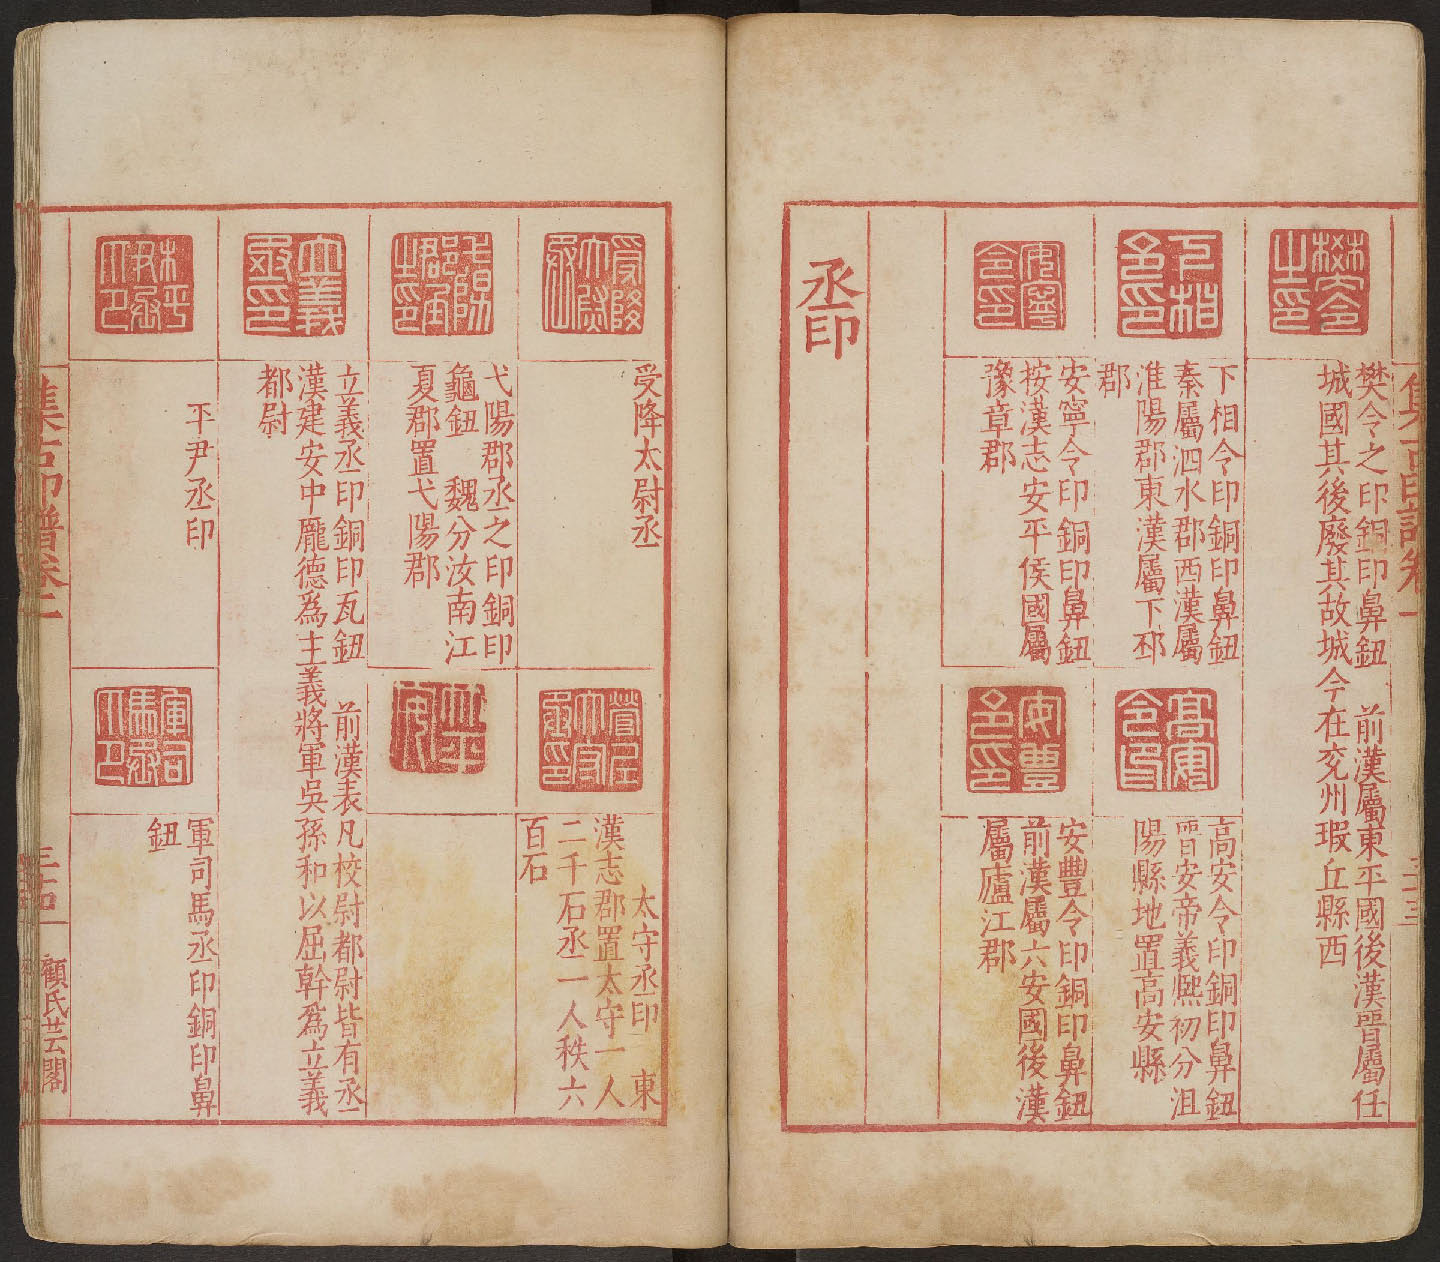 樊令之印銅印鼻鈕　前漢屬東平國後漢晉屬任
城國其後廢其故城今在兗州瑕丘縣西
下相令印銅印鼻鈕
秦屬泗水郡西漢屬
淮陽郡東漢屬下邳
郡
高安令印銅印鼻鈕
晉安帝義熙初分沮
陽縣地置高安縣
安寧令印銅印鼻鈕
按漢志安平侯國屬
豫章郡
安豐令印銅印鼻鈕
前漢屬六安國後漢
屬廬江郡
丞印
受降太尉丞
太守丞印　東
漢志郡置太守一人
二千石丞一人秩六
百石
弋陽郡丞之印銅印
龜鈕　魏分汝南江
夏郡置弋陽郡
立義丞印銅印瓦鈕　前漢表凡校尉都尉皆有丞
漢建安中龐德爲主義將軍吳孫和以屈幹爲立義
都尉
平尹丞印
軍司馬丞印銅印鼻
鈕
集古印譜卷二
三十四
顧氏芸閣